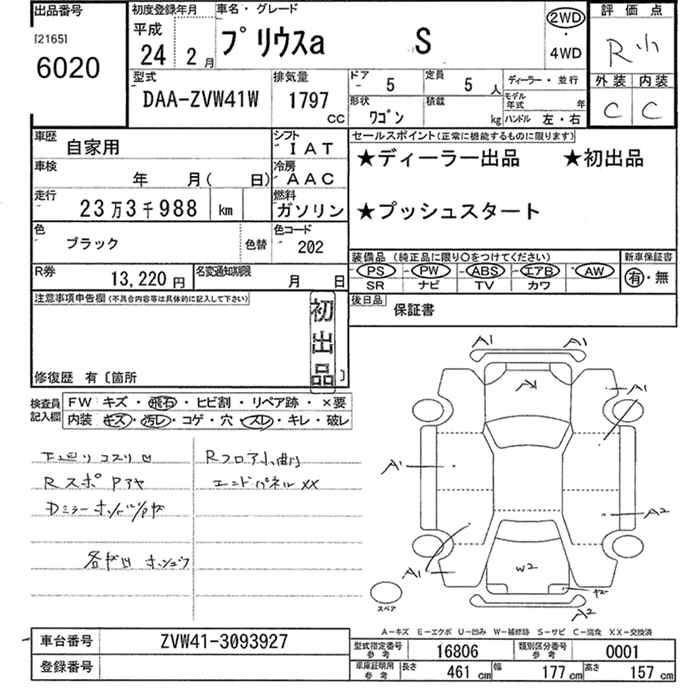 出品番号
[2165]
6020
初度登録年月
平成
24 2月
車名・グレード
プリウスa S
2WD
・
4WD
評価点
R小
外装 内装
C C
型式
DAA-ZVW41W
排気量
1797
CC
ドア
- 5
定員
5 人
ディーラー・並行
形状
ワゴン
積載
kg
モデル年式 年
ハンドル 左・右
車歴
自家用
シフト
IAT
車検
年 月( 日)
冷房
AAC
走行
23万3千988 km
燃料
ガソリン
色
ブラック
色替
色コード
202
R券
13,220 円
名変通知期限
月 日
セールスポイント(正常に機能するものに限ります)
★ディーラー出品 ★初出品
★プッシュスタート
装備品 (純正品に限り○をつけてください)
新車保証書
PS PW ABS エアB AW
SR ナビ TV カワ
有・無
後日品
保証書
注意事項申告欄(不具合内容等は具体的に記入して下さい)
初出品
修復歴 有〔箇所 〕
検査員記入欄
FW キズ・飛石・ヒビ割・リペア跡・×要
内装 キズ・汚レ・コゲ・穴・スレ・キレ・破レ
Rフロア小曲り
エンドパネルXX
A1 A1
A1 A1
A1
A2
A1
W2
A2
スペア
A-キズ E-エクボ U-凹み W-補修跡 S-サビ C-腐食 XX-交換済
車台番号
ZVW41-3093927
登録番号
型式指定番号
参考
16806
類別区分番号
参考
0001
車庫証明用
参考
長さ 461 cm 幅 177 cm 高さ 157 cm